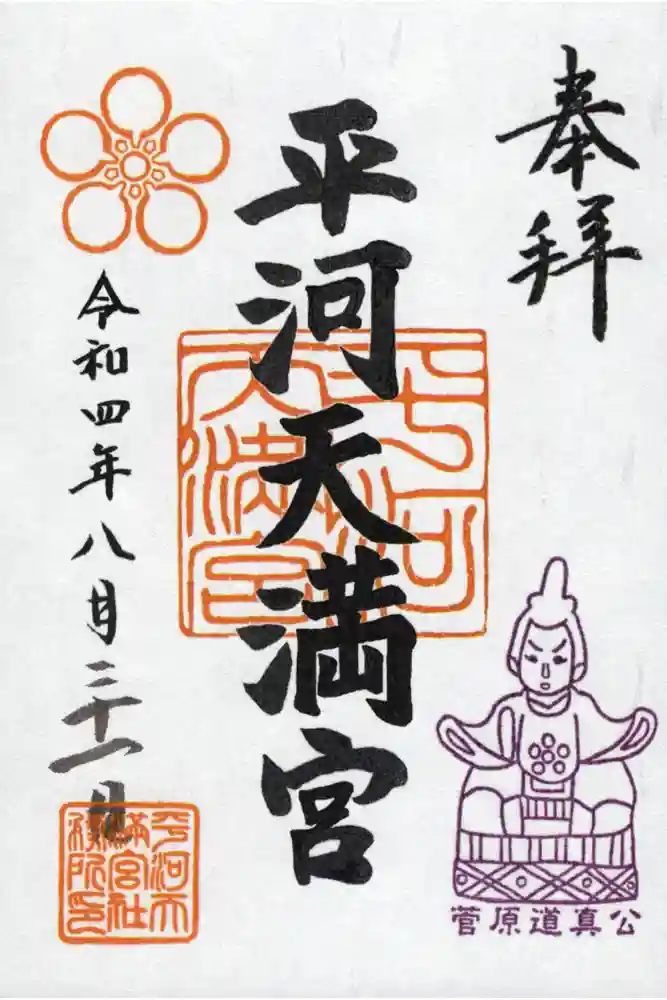 奉拝
平河天満宮
平河天満宮
令和四年八月三十一日
平河天満宮社務所印
菅原道真公